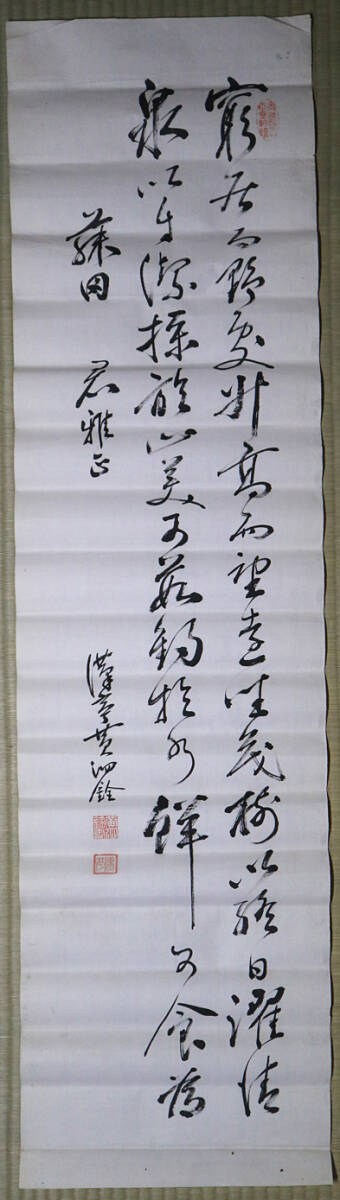 窮居而野處升高而望遠坐茂樹以終日濯清
泉以自潔採於山美可茹釣於水鮮可食為
藤田君雅正
黃泗銓